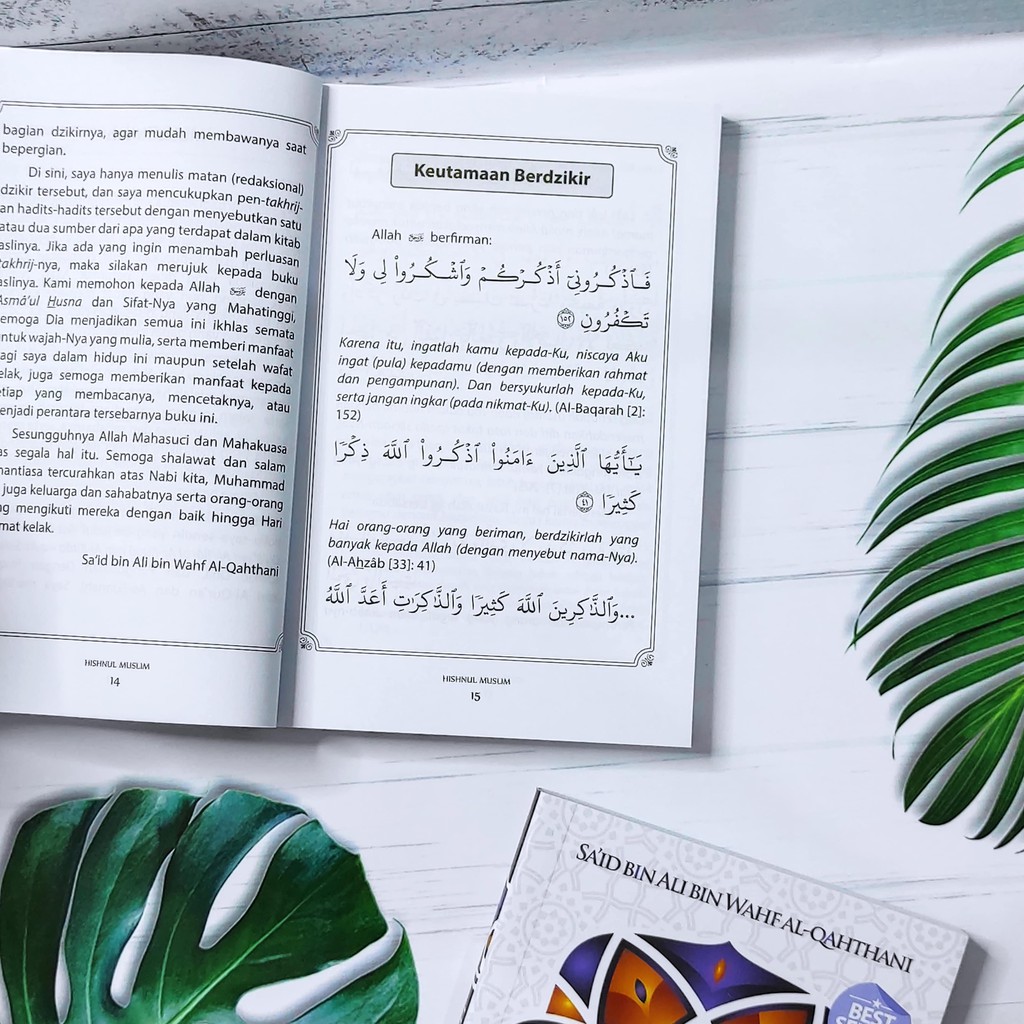 bagian dzikirnya, agar mudah membawanya saat
bepergian.
Di sini, saya hanya menulis matan (redaksional)
dzikir tersebut, dan saya mencukupkan pen-takhrij-
an hadits-hadits tersebut dengan menyebutkan satu
atau dua sumber dari apa yang terdapat dalam kitab
aslinya. Jika ada yang ingin menambah perluasan
takhrij-nya, maka silakan merujuk kepada buku
aslinya. Kami memohon kepada Allah ﷻ dengan
Asmâ'ul Husna dan Sifat-Nya yang Mahatinggi,
emoga Dia menjadikan semua ini ikhlas semata
ntuk wajah-Nya yang mulia, serta memberi manfaat
agi saya dalam hidup ini maupun setelah wafat
elak, juga semoga memberikan manfaat kepada
etiap yang membacanya, mencetaknya, atau
enjadi perantara tersebarnya buku ini.
Sesungguhnya Allah Mahasuci dan Mahakuasa
as segala hal itu. Semoga shalawat dan salam
nantiasa tercurahkan atas Nabi kita, Muhammad
juga keluarga dan sahabatnya serta orang-orang
ng mengikuti mereka dengan baik hingga Hari
mat kelak.
Sa'id bin Ali bin Wahf Al-Qahthani
HISHNUL MUSLIM
14
Keutamaan Berdzikir
Allah ﷻ berfirman:
فَٱذْكُرُونِىٓ أَذْكُرْكُمْ وَٱشْكُرُوا۟ لِى وَلَا
تَكْفُرُونِ ١٥٢
Karena itu, ingatlah kamu kepada-Ku, niscaya Aku
ingat (pula) kepadamu (dengan memberikan rahmat
dan pengampunan). Dan bersyukurlah kepada-Ku,
serta jangan ingkar (pada nikmat-Ku). (Al-Baqarah [2]:
152)
يَٰٓأَيُّهَا ٱلَّذِينَ ءَامَنُوا۟ ٱذْكُرُوا۟ ٱللَّهَ ذِكْرًا
كَثِيرًا ٤١
Hai orang-orang yang beriman, berdzikirlah yang
banyak kepada Allah (dengan menyebut nama-Nya).
(Al-Ahzâb [33]: 41)
...وَٱلذَّٰكِرِينَ ٱللَّهَ كَثِيرًا وَٱلذَّٰكِرَٰتِ أَعَدَّ ٱللَّهُ
HISHNUL MUSLIM
15
SA'ID BIN ALI BIN WAHF AL-QAHTHANI
BEST